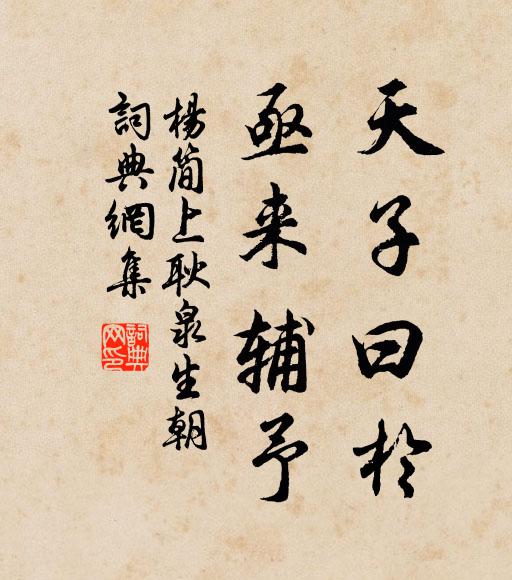 天子曰於
亟来辅予
楊简上耿泉生朝
詞典網集
詞典网印